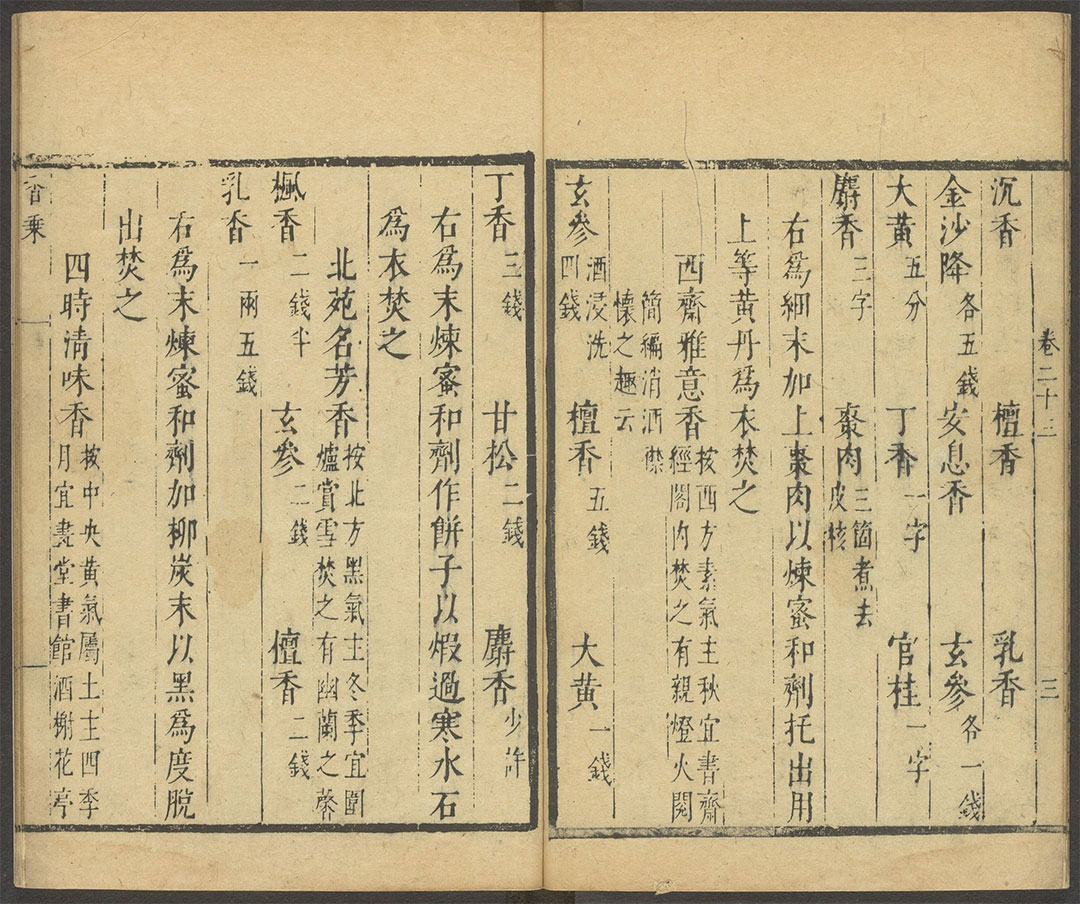 卷二十三 三
沉香 檀香 乳香
金沙降各五錢 安息香 玄參各一錢
大黃五分 丁香一字 官桂一字
麝香三字 棗肉三箇煮去皮核
右爲細末加上棗肉以煉蜜和劑托出用
上等黃丹爲衣焚之
西齋雅意香按西方素氣主秋宜書齋經閣内焚之有親燈火閱
簡編消酒襟懷之趣云
玄參酒浸洗四錢 檀香五錢 大黃一錢
丁香三錢 甘松二錢 麝香少許
右爲末煉蜜和劑作餅子以煆過寒水石
爲衣焚之
北苑名芳香按北方黑氣主冬季宜圍爐賞雪焚之有幽蘭之馨
楓香二錢半 玄參二錢 檀香二錢
乳香一兩五錢
右爲末煉蜜和劑加柳炭末以黑爲度脫
出焚之
四時清味香按中央黃氣屬土主四季月宜畫堂書館酒榭花亭
香乘